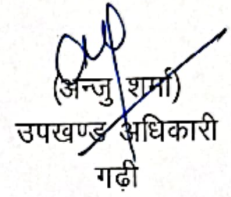 (अन्जु शर्मा)
उपखण्ड अधिकारी
गढ़ी